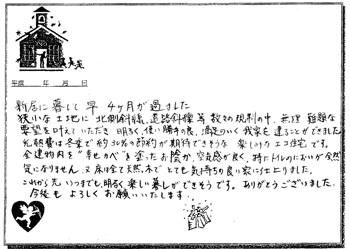 平成　年　月　日
新居に暮して早4ヶ月が過ました
狭小な土地に北側斜線、道路斜線等数々の規制の中、無理難題な
要望を叶えていただき明るく、使い勝手の良、満足のいく我家を建ることができました
光熱費は冬季で約30%の節約が期待できそうな楽しみのエコ住宅です。
全建物内を"幸せカベ"を塗ったお陰か、空気感が良く、特にトイレのにおいが全然
気になりません。又床は全て天然木でとても気持ちの良い家に仕上りました。
これから先いつまでも、明るく楽しい暮しができそうです。ありがとうございました。
今後もよろしくお願いいたします。